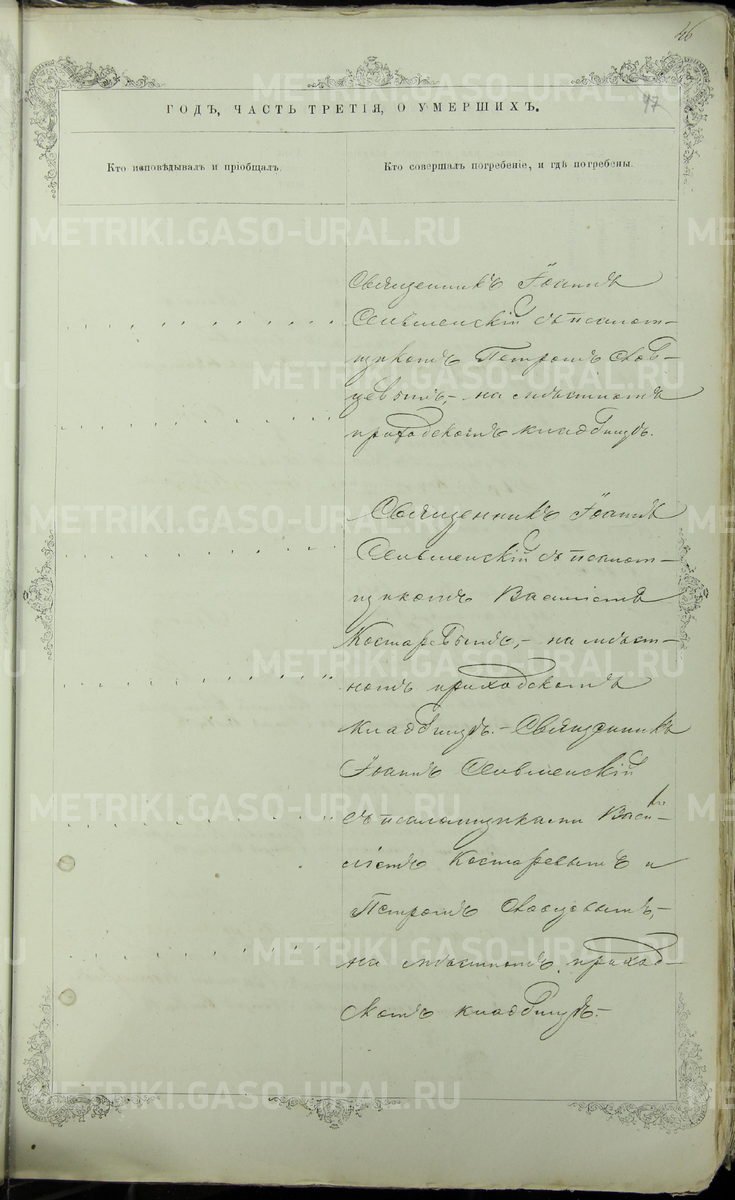 46
47
ГОДЪ, ЧАСТЬ ТРЕТІЯ, О УМЕРШИХЪ.
Кто исповѣдывалъ и пріобщалъ.
Кто совершалъ погребеніе, и гдѣ погребены.
Священникъ Іоаннъ
Сельменскій съ псалом-
щикомъ Петромъ Сков-
цевымъ,- на мѣстномъ
приходскомъ кладбищѣ.
Священникъ Іоаннъ
Сельменскій съ псалом-
щикомъ Василіемъ
Костаревымъ,- на мѣст-
номъ приходскомъ
кладбищѣ.- Священникъ
Іоаннъ Сельменскій
съ псаломщиками Васи-
ліемъ Костаревымъ и
Петромъ
на мѣстномъ приход-
скомъ кладбищѣ.-
METRIKI.GASO-URAL.RU